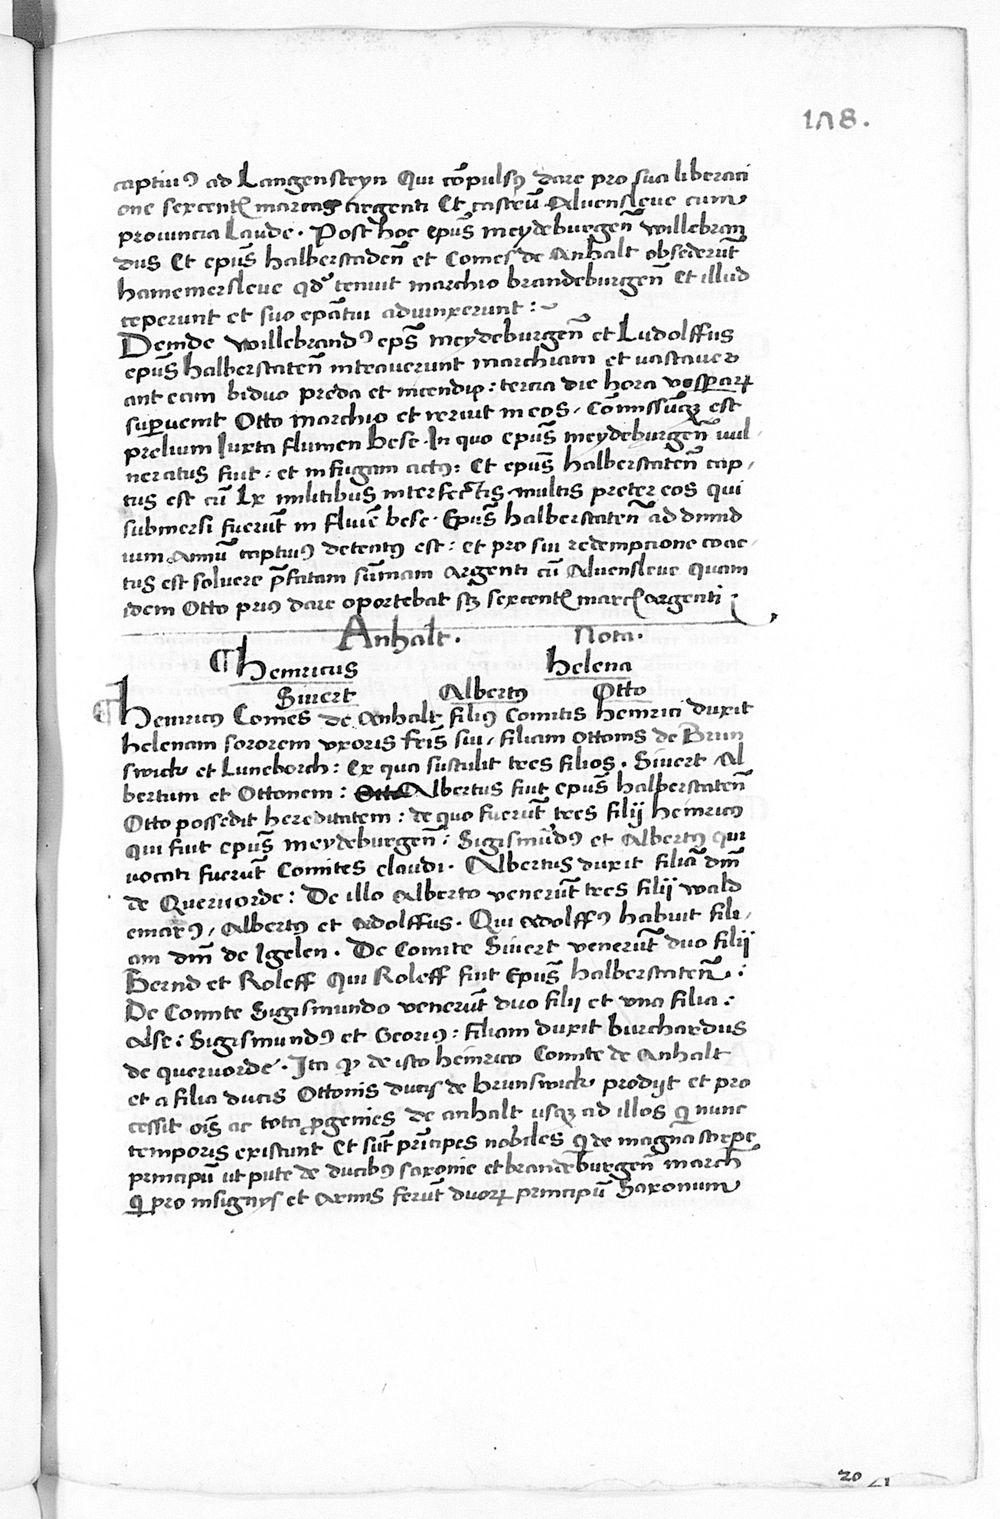 178.
captiuꝰ ad Langensteyn Qui cōpulsꝰ dare pro sua liberaci
one sexcentꝭ marcas argenti Et castrū Aluensleue cum
prouincia Laude. Post hoc epūs meydeburgen̄ willebran
dus Et epūs halberstaden̄ et Comes de Anhalt obsederūt
hamemersleue qd' tenuit marchio brandeburgen̄ Et illud
ceperunt et suo epātui adiunxerunt :~
Deinde willebrandꝰ eps̄ meydeburgen̄ et Ludolffus
epūs halberstaten̄ intrauerunt marchiam et vastauer
ant eam biduo preda et incendio : tercia die hora vesperarꝝ
supervenit Otto marchio et reruit in eos, Cōmissūqꝫ est
prelium Iuxta flumen bese. In quo epūs meydeburgen̄ vul,
neratus fuit : et in fugam actꝰ : Et epūs halberstaten̄ cap,
tus est cū Lx militibus interfectis multis preter eos qui
submersi fuerūt in fluiē bese. Epūs halberstaten̄ ad dimid
ium Annū captiuꝰ detentꝰ est : et pro sui redempcione coac,
tus est soluere p̄fatam sūmam argenti cū Aluensleue Quam
idem Otto priꝰ dare oportebat sꝫ sexcentꝭ marcꝭ argenti ;
Anhalt. Nota.
¶ Heinricus helena
Siuert Albertꝰ Otto
¶ Heinricꝰ Comes de Anhalt filiꝰ Comitis heinrici duxit
helenam sororem vxoris fr̄is sui, filiam ottonis de Brun
swick et Luneborch : Ex qua sustulit tres filios. Siuert Al
bertum et Ottonem : Albertus fuit epūs halberstaten̄
Otto possedit hereditatem : de quo fuerūt tres filij heinricꝰ
qui fuit epūs meydeburgen̄ : Sigismūdꝰ et Albertꝰ qui
vocati fuerūt Comites claudi. Albertus duxit filiā dn̄i
de Queruorde : De illo Alberto venerūt tres filij wald
emarꝰ, Albertꝰ et Adolffus. Qui Adolffꝰ habuit fili,
am dn̄i de Igelen. De Comite Siuert venerūt duo filij
Bernd et Roleff Qui Roleff fuit Epūs halberstaten̄ :
De Comite Sigismundo venerūt duo filij et vna filia :
Alse : Sigismundꝰ et Georiꝰ : filiam duxit burchardus
de queruorde. Ita ꝙ de isto heinrico Comite de Anhalt
et a filia ducis Ottonis ducis de brunswick prodijt et pro
cessit oīs ac tota ꝓgenies de anhalt usqꝫ ad illos qui nunc
temporis existunt Et sūt prīcipes nobiles qui de magna stirpe
principū ut pute de ducibꝰ saxonie et brandeburgen̄ march̄
Qui pro insignijs et armis ferūt duorꝝ principū Saxonum
20